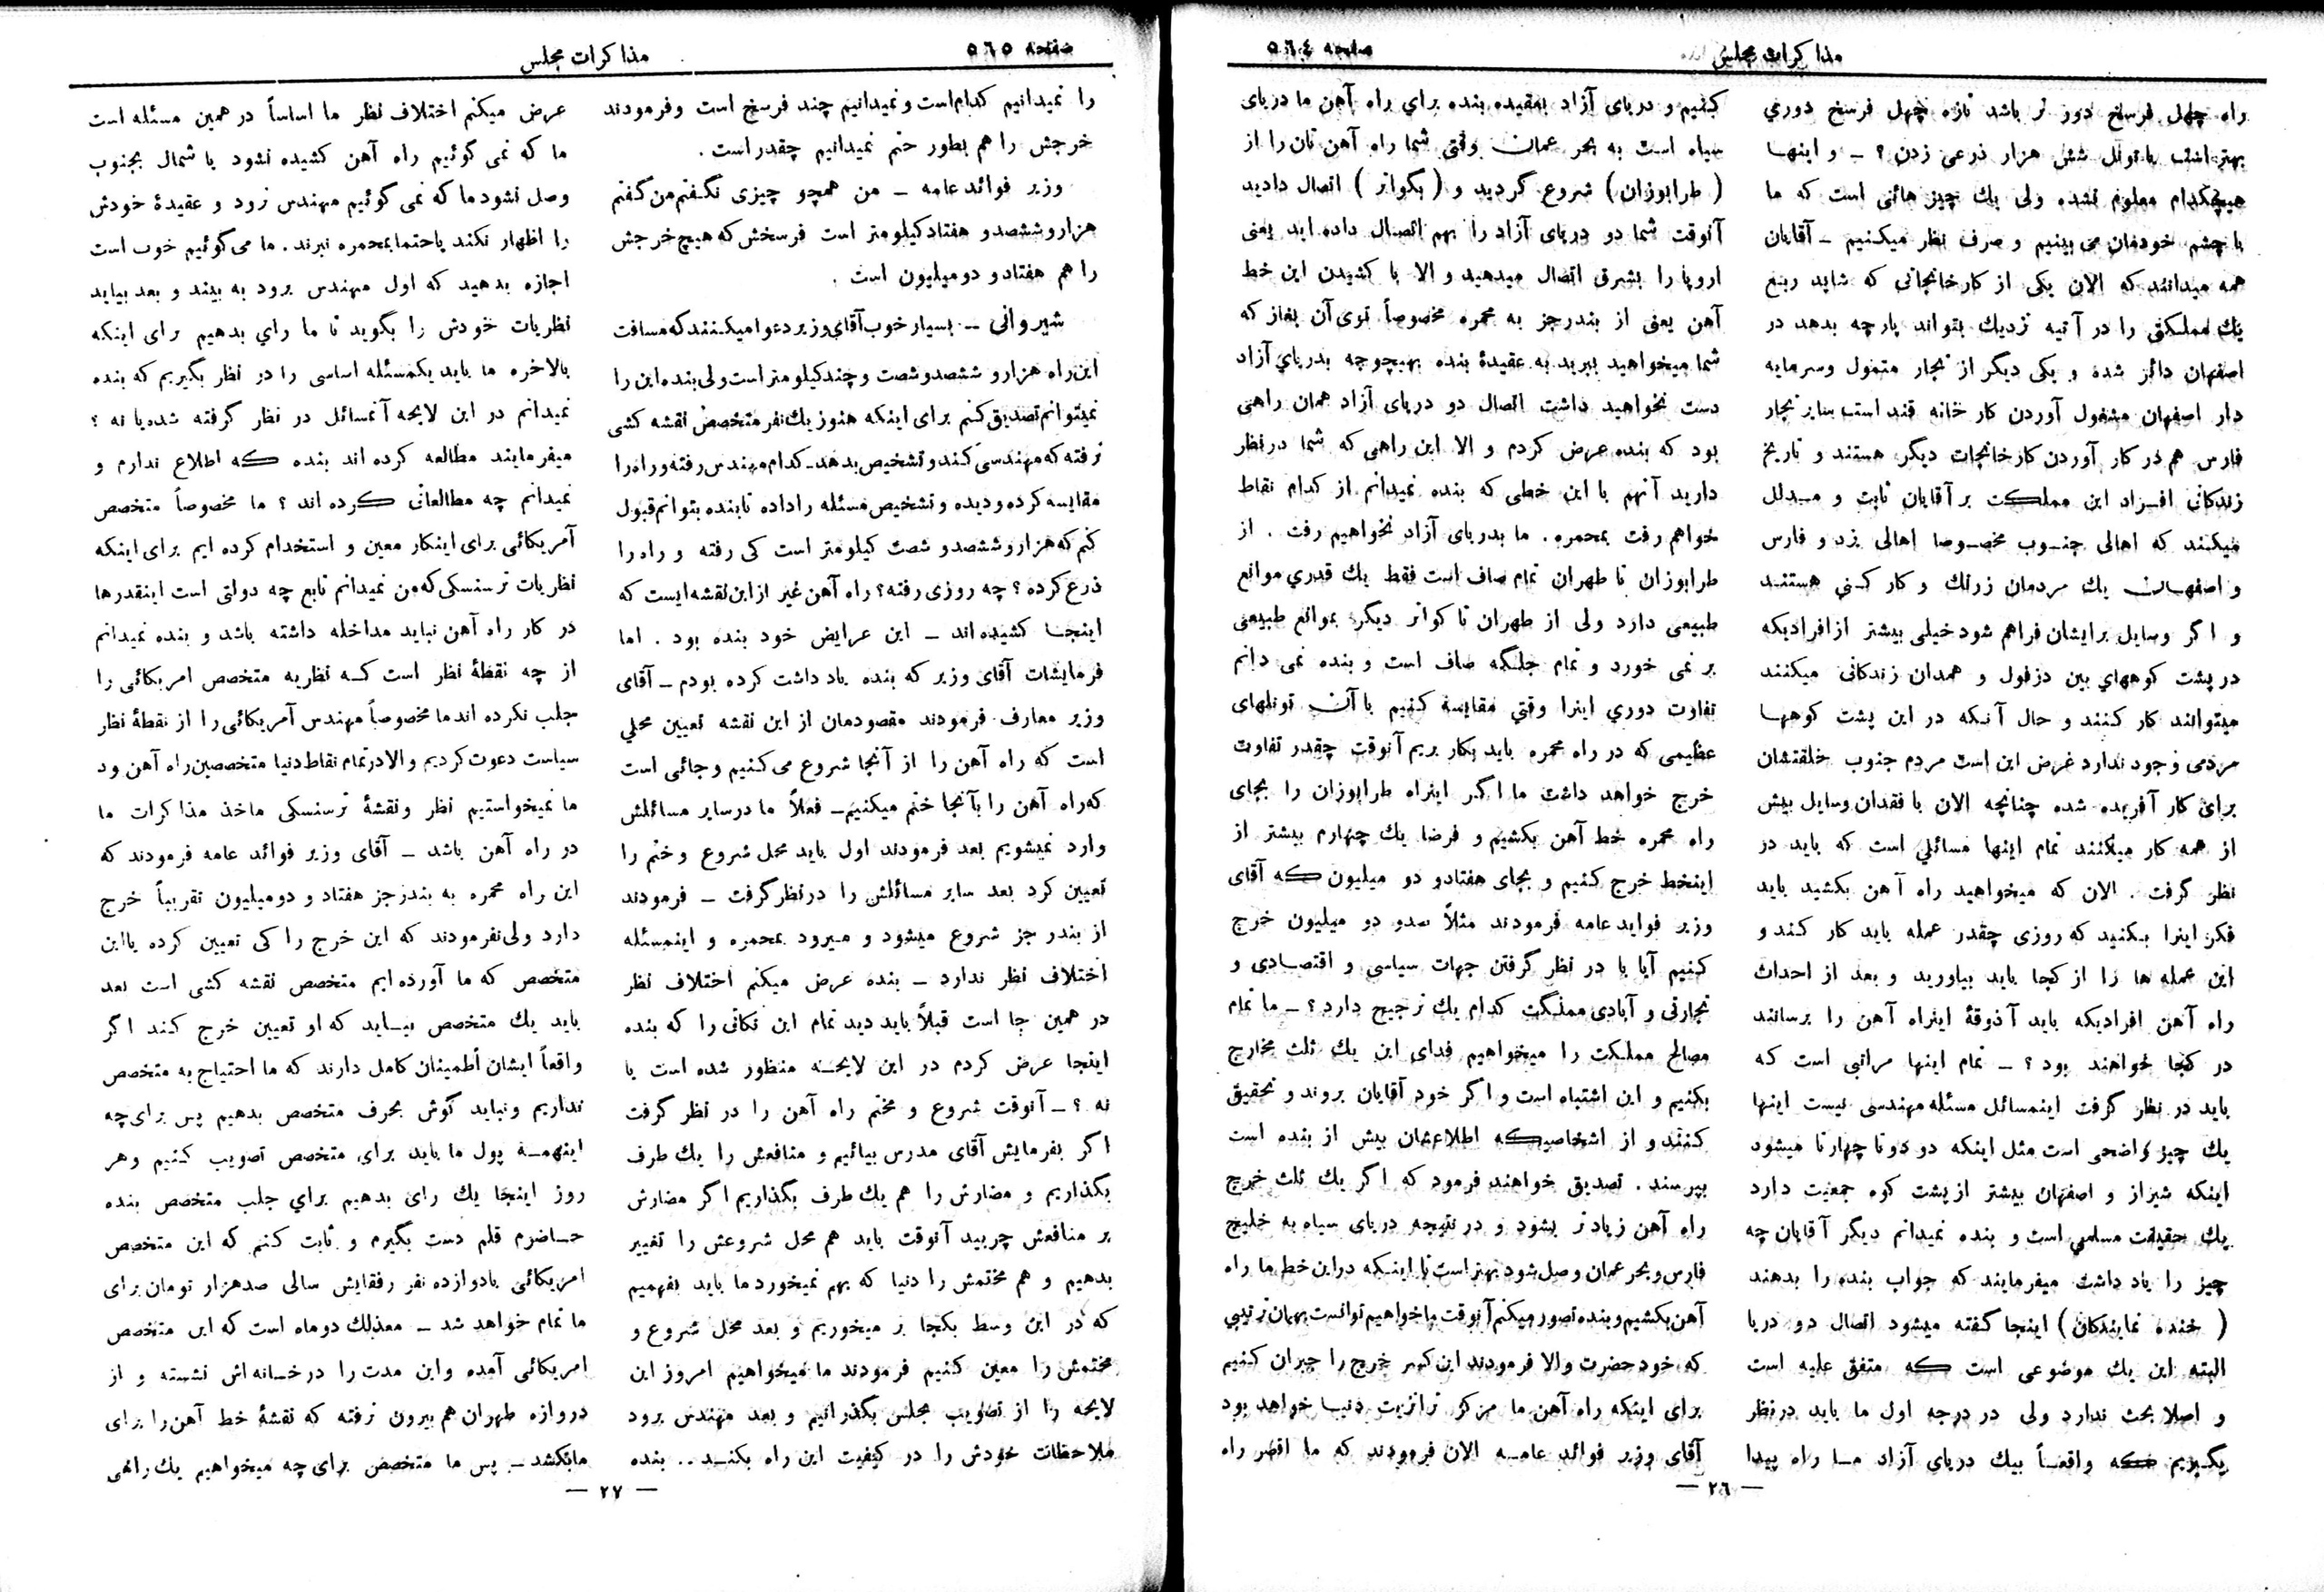 مذاکرات مجلس
صفحه ٥٦٤
راه چهل فرسخ دور تر باشد تازه چهل فرسخ دوری
بهتر است یا تونل شش هزار ذرعی زدن ؟ ـ و اینهـا
هیچکدام معلوم نشده ولی یك چیز هائی است که ما
با چشم خودمان می بینیم و صرف نظر میکنیم ـ آقایان
همه میدانند که الان یکی از کارخانجاتی که شاید ربع
یك مملکتی را در آتیه نزدیك بتواند پارچه بدهد در
اصفهان دائر شده و یکی دیگر از تجار متمول وسرمایه
دار اصفهان مشغول آوردن کار خانه قند است سایر تجار
فارس هم در کار آوردن کارخانجات دیگر هستند و تاریخ
زندگانی افـراد این مملکت بر آقایان ثابت و مـدلل
میکند که اهالی جنـوب مخصـوصا اهالی یزد و فارس
و اصفهـان یك مردمان زرنك و کار کـنی هستنـد
و اگر وسایل برایشان فراهم شود خیلی بیشتر از افرادیکه
در پشت کوههای بین دزفول و همدان زندگانی میکنند
میتوانند کار کنند و حال آنکه در این پشت کوههـا
مردمی وجود ندارد غرض این است مردم جنوب خلقتشان
برای کار آفریده شده چنانچه الان با فقدان وسایل بیش
از همه کار میکنند تمام اینها مسائلی است که باید در
نظر گرفت . الان که میخواهید راه آهن بکشید باید
فکر اینرا بـکنید که روزی چقدر عمله باید کار کند و
این عمله ها را از کجا باید بیاورید و بعد از احداث
راه آهن افرادیکه باید آذوقهٔ اینراه آهن را برسانند
در کجا خواهند بود ؟ ـ تمام اینها مراتبی است که
باید در نظر گرفت اینمسائل مسئله مهندسی نیست اینها
یك چیز واضحی است مثل اینکه دو دو تا چهار تا میشود
اینکه شیراز و اصفهان بیشتر از پشت کوه جمعیت دارد
یك حقیقت مسلمی است و بنده نمیدانم دیگر آقایان چه
چیز را یاد داشت میفرمایند که جواب بنده را بدهند
( خنده نمایندگان ) اینجا گفته میشود اتصال دو دریا
البته این یك موضوعی است که متفق علیه است
و اصلا بحث ندارد ولی در درجه اول ما باید درنظر
بگیریم که واقعـاً بیك دریای آزاد مـا راه پیدا
کنیم و دریای آزاد بعقیده بنده برای راه آهن ما دریای
سیاه است به بحر عمان وقتی شما راه آهن تان را از
( طرابوزان ) شروع کردید و ( بگواتر ) اتصال دادید
آنوقت شما دو دریای آزاد را بهم اتصال داده اید یعنی
اروپا را بشرق اتصال میدهید و الا با کشیدن این خط
آهن یعنی از بندرجز به محمره مخصوصاً توی آن بغاز که
شما میخواهید ببرید به عقیدهٔ بنده بهیچوجه بدریای آزاد
دست نخواهید داشت اتصال دو دریای آزاد همان راهی
بود که بنده عرض کردم و الا این راهی که شما درنظر
دارید آنهم با این خطی که بنده نمیدانم از کدام نقاط
خواهم رفت بمحمره. ما بدریای آزاد نخواهیم رفت . از
طرابوزان تا طهران تمام صاف است فقط یك قدری موانع
طبیعی دارد ولی از طهران تا کواتر دیگر بموانع طبیعی
بر نمی خورد و تمام جلگه صاف است و بنده نمی دانم
تفاوت دوری اینرا وقتی مقایسه کنیم با آن تونلهای
عظیمی که در راه محمره باید بکار بریم آنوقت چقدر تفاوت
خرج خواهد داشت ما اگر اینراه طرابوزان را بجای
راه محمره خط آهن بکشیم و فرضا یك چهارم بیشتر از
اینخط خرج کنیم و بجای هفتادو دو میلیون که آقای
وزیر فواید عامه فرمودند مثلاً صدو دو میلیون خرج
کنیم آیا با در نظر گرفتن جهات سیاسی و اقتصـادی و
تجارتی و آبادی مملکت کدام یك ترجیح دارد ؟ ـ ما تمام
مصالح مملکت را میخواهیم فدای این یك ثلث مخارج
بکنیم و این اشتباه است و اگر خود آقایان بروند و تحقیق
کنند و از اشخاصیکه اطلاعشان بیش از بنده است
بپرسند . تصدیق خواهند فرمود که اگر یك ثلث خرج
راه آهن زیاد تر بشود و در نتیجه دریای سیاه به خلیج
فارس و بحر عمان وصل شود بهتر است تا اینکه در این خط ما راه
آهن بکشیم و بنده تصور میکنم آنوقت ما خواهیم توانست بهمان ترتیبی
که خود حضرت والا فرمودند این کسر خرج را جبران کنیم
برای اینکه راه آهن ما مرکز ترانزیت دنیـا خواهد بود
آقای وزیر فوائد عامـه الان فرمودند که ما اقصر راه
— ٢٦ —
صفحه ٥٦٥
مذاکرات مجلس
را نمیدانیم کدام است و نمیدانیم چند فرسخ است وفرمودند
خرجش را هم بطور حتم نمیدانیم چقدر است .
وزیر فوائد عامه ـ من همچو چیزی نگـفتم من گفتم
هزاروششصدو هفتادکیلو متر است فرسخش که هیچ خرجش
را هم هفتادو دومیلیون است .
شیروانی ـ بسیار خوب آقای وزیر دعوا میکنند که مسافت
این راه هزار و ششصدو شصت و چند کیلو متر است ولی بنده این را
نمیتوانم تصدیق کنم برای اینکه هنوز یك نفر متخصص نقشه کشی
نرفته که مهندسی کند و تشخیص بدهد ـ کدام مهندس رفته و راه را
مقایسه کرده و دیده و تشخیص مسئله را داده تا بنده بتوانم قبول
کنم که هزار و ششصدو شصت کیلومتر است کی رفته و راه را
ذرع کرده ؟ چه روزی رفته ؟ راه آهن غیر از این نقشه ایست که
اینجـا کشیده اند ـ این عرایض خود بنده بود . اما
فرمایشات آقای وزیر که بنده یاد داشت کرده بودم ـ آقای
وزیر معارف فرمودند مقصودمان از این نقشه تعیین محلی
است که راه آهن را از آنجا شروع می کنیم وجائی است
که راه آهن را بآنجا ختم میکنیم ـ فعلاً ما درسایر مسائلش
وارد نمیشویم بعد فرمودند اول باید محل شروع و ختم را
تعیین کرد بعد سایر مسائلش را درنظر گرفت ـ فرمودند
از بندر جز شروع میشود و میرود بمحمره و اینمسئله
اختلاف نظر ندارد ـ بنده عرض میکنم اختلاف نظر
در همین جا است قبلاً باید دید تمام این نکاتی را که بنده
اینجا عرض کردم در این لایحـه منظور شده است یا
نه ؟ ـ آنوقت شروع و مختم راه آهن را در نظر گرفت
اگر بفرمایش آقای مدرس بیائیم و منافعش را یك طرف
بگذاریم و مضارش را هم یك طرف بگذاریم اگر مضارش
بر منافعش چربید آنوقت باید هم محل شروعش را تغییر
بدهیم و هم مختمش را دنیا که بهم نمیخورد ما باید بفهمیم
که در این وسط بکجا بر میخوریم و بعد محل شروع و
مختمش را معین کنیم فرمودند ما میخواهیم امروز این
لایحه را از تصویب مجلس بگذرانیم و بعد مهندس برود
ملاحظات خودش را در کیفیت این راه بکنـد .. بنده
عرض میکنم اختلاف نظر ما اساساً در همین مسئله است
ما که نمی گوئیم راه آهن کشیده نشود یا شمال بجنوب
وصل نشود ما که نمی گوئیم مهندس نرود و عقیدهٔ خودش
را اظهار نکند یا حتما بمحمره نبرند . ما می گوئیم خوب است
اجازه بدهید که اول مهندس برود به بیند و بعد بیاید
نظریات خودش را بگوید تا ما رأی بدهیم برای اینکه
بالاخره ما باید یکمسئله اساسی را در نظر بگیریم که بنده
نمیدانم در این لایحه آنمسائل در نظر گرفته شده یا نه ؟
میفرمایند مطالعه کرده اند بنده که اطلاع ندارم و
نمیدانم چه مطالعاتی کرده اند ؟ ما مخصوصاً متخصص
آمریکائی برای اینکار معین و استخدام کرده ایم برای اینکه
نظریات ترسنسکی که من نمیدانم تابع چه دولتی است اینقدرها
در کار راه آهن نباید مداخله داشته باشد و بنده نمیدانم
از چه نقطهٔ نظر است کـه نظریه متخصص امریکائی را
جلب نکرده اند ما مخصوصاً مهندس آمریکائی را از نقطهٔ نظر
سیاست دعوت کردیم و الا در تمام نقاط دنیا متخصصین راه آهن ود
ما نمیخواستیم نظر ونقشهٔ ترسنسکی ماخذ مذاکرات ما
در راه آهن باشد ـ آقای وزیر فوائد عامه فرمودند که
این راه محمره به بندرجز هفتاد و دومیلیون تقریباً خرج
دارد ولی نفرمودند که این خرج را کی تعیین کرده یا این
متخصص که ما آورده ایم متخصص نقشه کشی است بعد
باید یك متخصص بیـاید که او تعیین خرج کـند اگر
واقعاً ایشان اطمینان کامل دارند که ما احتیاج به متخصص
نداریم ونباید گوش بحرف متخصص بدهیم پس برای چه
اینهمـه پول ما باید برای متخصص تصویب کنیم وهر
روز اینجا یك رای بدهیم برای جلب متخصص بنده
حـاضرم قلم دست بگیرم و ثابت کنم که این متخصص
امریکائی بادوازده نفر رفقایش سالی صدهزار تومان برای
ما تمام خواهد شد ـ معذلك دوماه است که این متخصص
امریکائی آمده واین مدت را درخـانه اش نشسته و از
دروازه طهران هم بیرون نرفته که نقشهٔ خط آهن را برای
مابکشد ـ پس ما متخصص برای چه میخواهیم یك راهی
— ٢٧ —